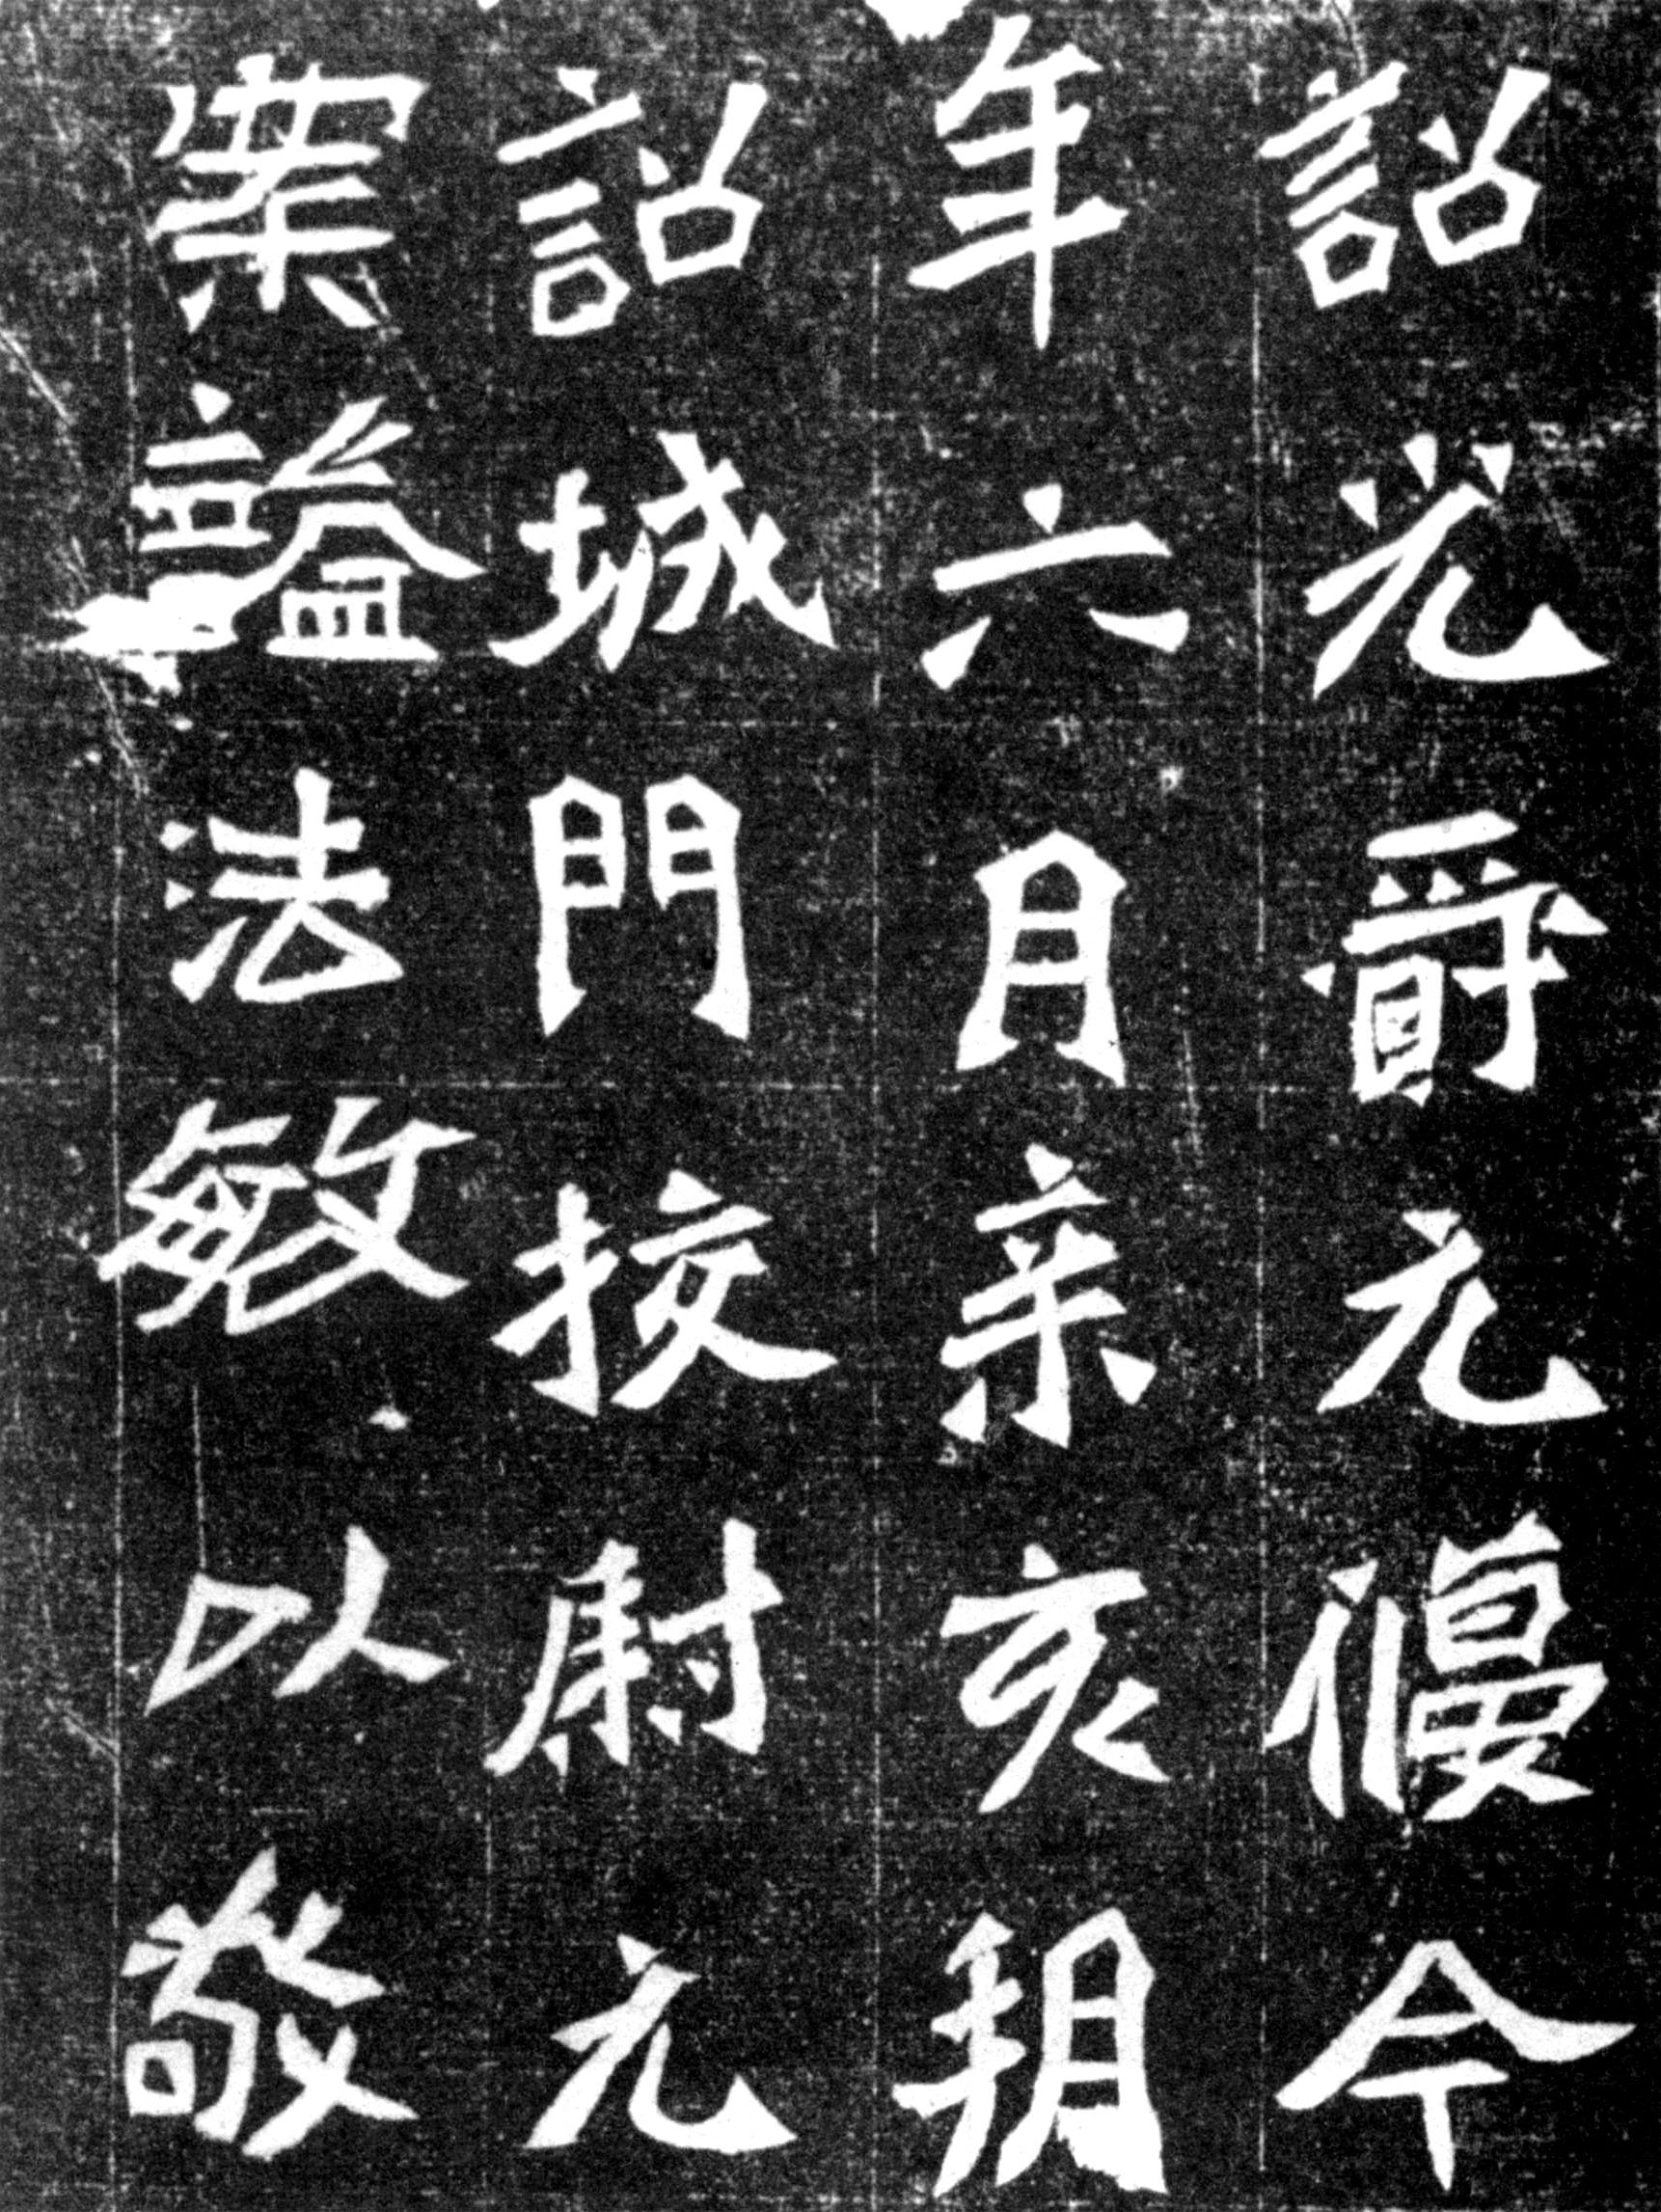 詔光爵元優今
年六月辛亥朔
詔城門挍尉元
案謚法敏以敬